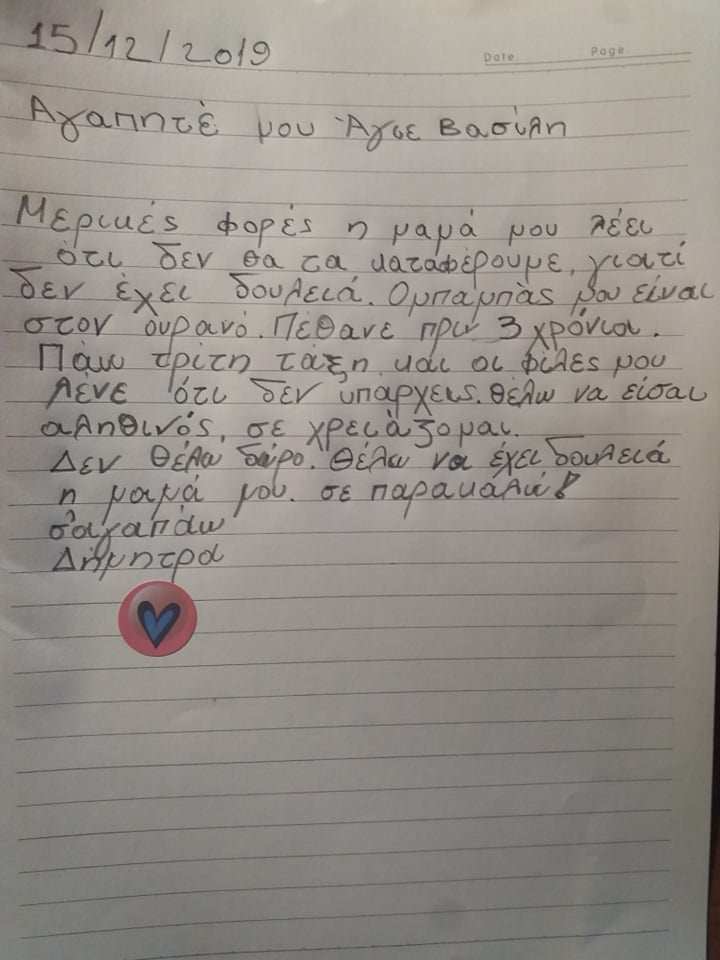 15/12/2019
Date Page
Αγαπητέ μου Άγιε Βασίλη
Μερικές φορές η μαμά μου λέει
ότι δεν θα τα καταφέρουμε, γιατί
δεν έχει δουλειά. Ομπαμπάς μου είναι
στον ουρανό. Πέθανε πριν 3 χρόνια.
Πάω τρίτη τάξη και οι φίλες μου
λένε ότι δεν υπάρχεις. θέλω να είσαι
αληθινός, σε χρειάζομαι.
Δεν θέλω δώρο. θέλω να έχει δουλειά
η μαμά μου. σε παρακαλώ!
σ'αγαπάω
Δήμητρα